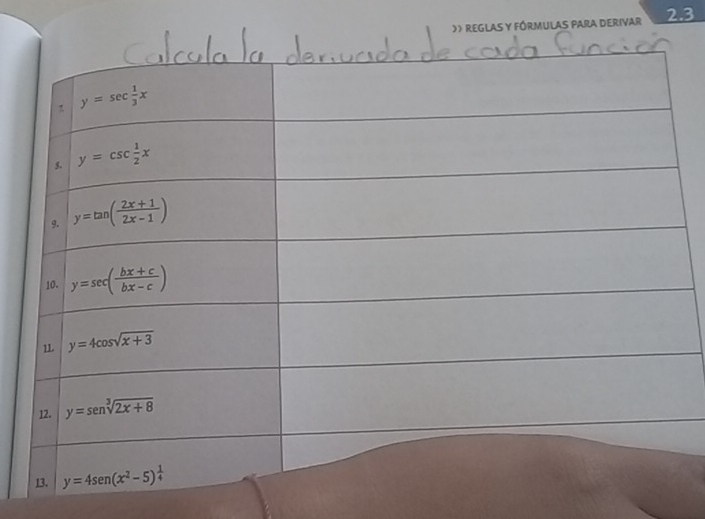 >> REGLAS Y FÓRMULAS PARA DERIVAR 2.3
Calcula la derivada de cada función
7. y = sec 1/3 x
8. y = csc 1/2 x
9. y = tan((2x + 1)/(2x − 1))
10. y = sec((bx + c)/(bx − c))
11. y = 4cos√(x + 3)
12. y = sen∛(2x + 8)
13. y = 4sen(x² − 5)^(1/4)